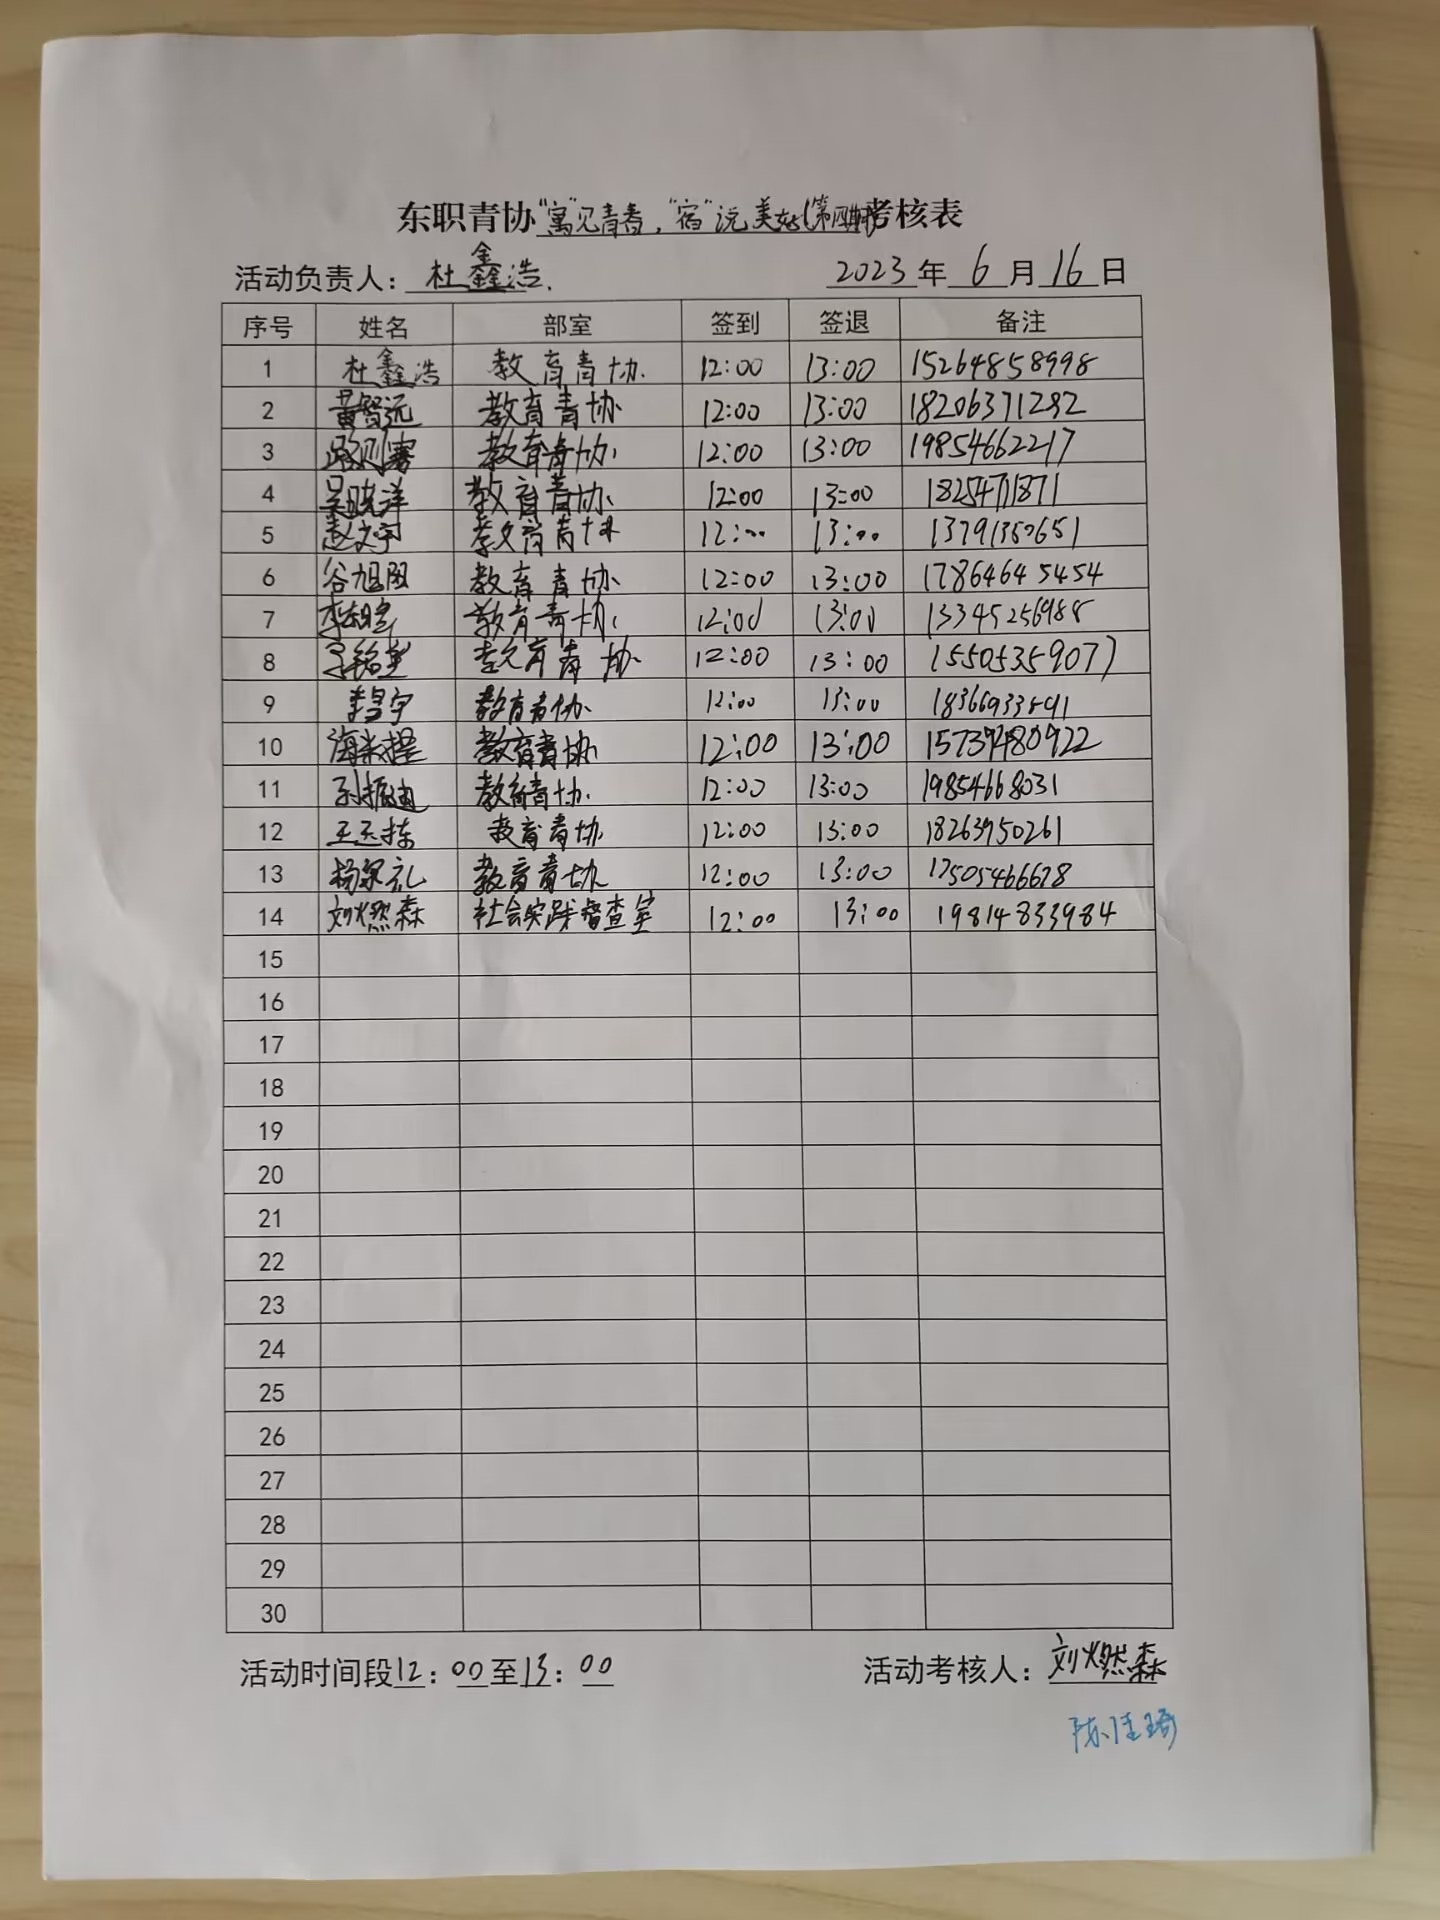 东职青协"寓"见青春，"宿"说美好(第四期)考核表
活动负责人：杜鑫浩.
2023年6月16日
序号 姓名 部室 签到 签退 备注
1 杜鑫浩 教育青协 12:00 13:00 15264858998
2 黄智远 教育青协 12:00 13:00 18206371282
3 教育青协 12:00 13:00 19854662217
4 吴晓洋 教育青协 12:00 13:00 18254711871
5 赵文宇 教育青协 12:00 13:00 13791350651
6 谷旭阳 教育青协 12:00 13:00 17864645454
7 教育青协 12:00 13:00 13345256988
8 教育青协 12:00 13:00 15505359077
9 李昌宇 教育青协 12:00 13:00
10 教育青协 12:00 13:00
11 教育青协 12:00 13:00 19854668031
12 王玉栋 教育青协 12:00 13:00 18263950261
13 教育青协 12:00 13:00 17505466678
14 刘燃森 社会实践督查室 12:00 13:00 19814833984
15
16
17
18
19
20
21
22
23
24
25
26
27
28
29
30
活动时间段12：00至13：00
活动考核人：刘燃森
陈佳琦